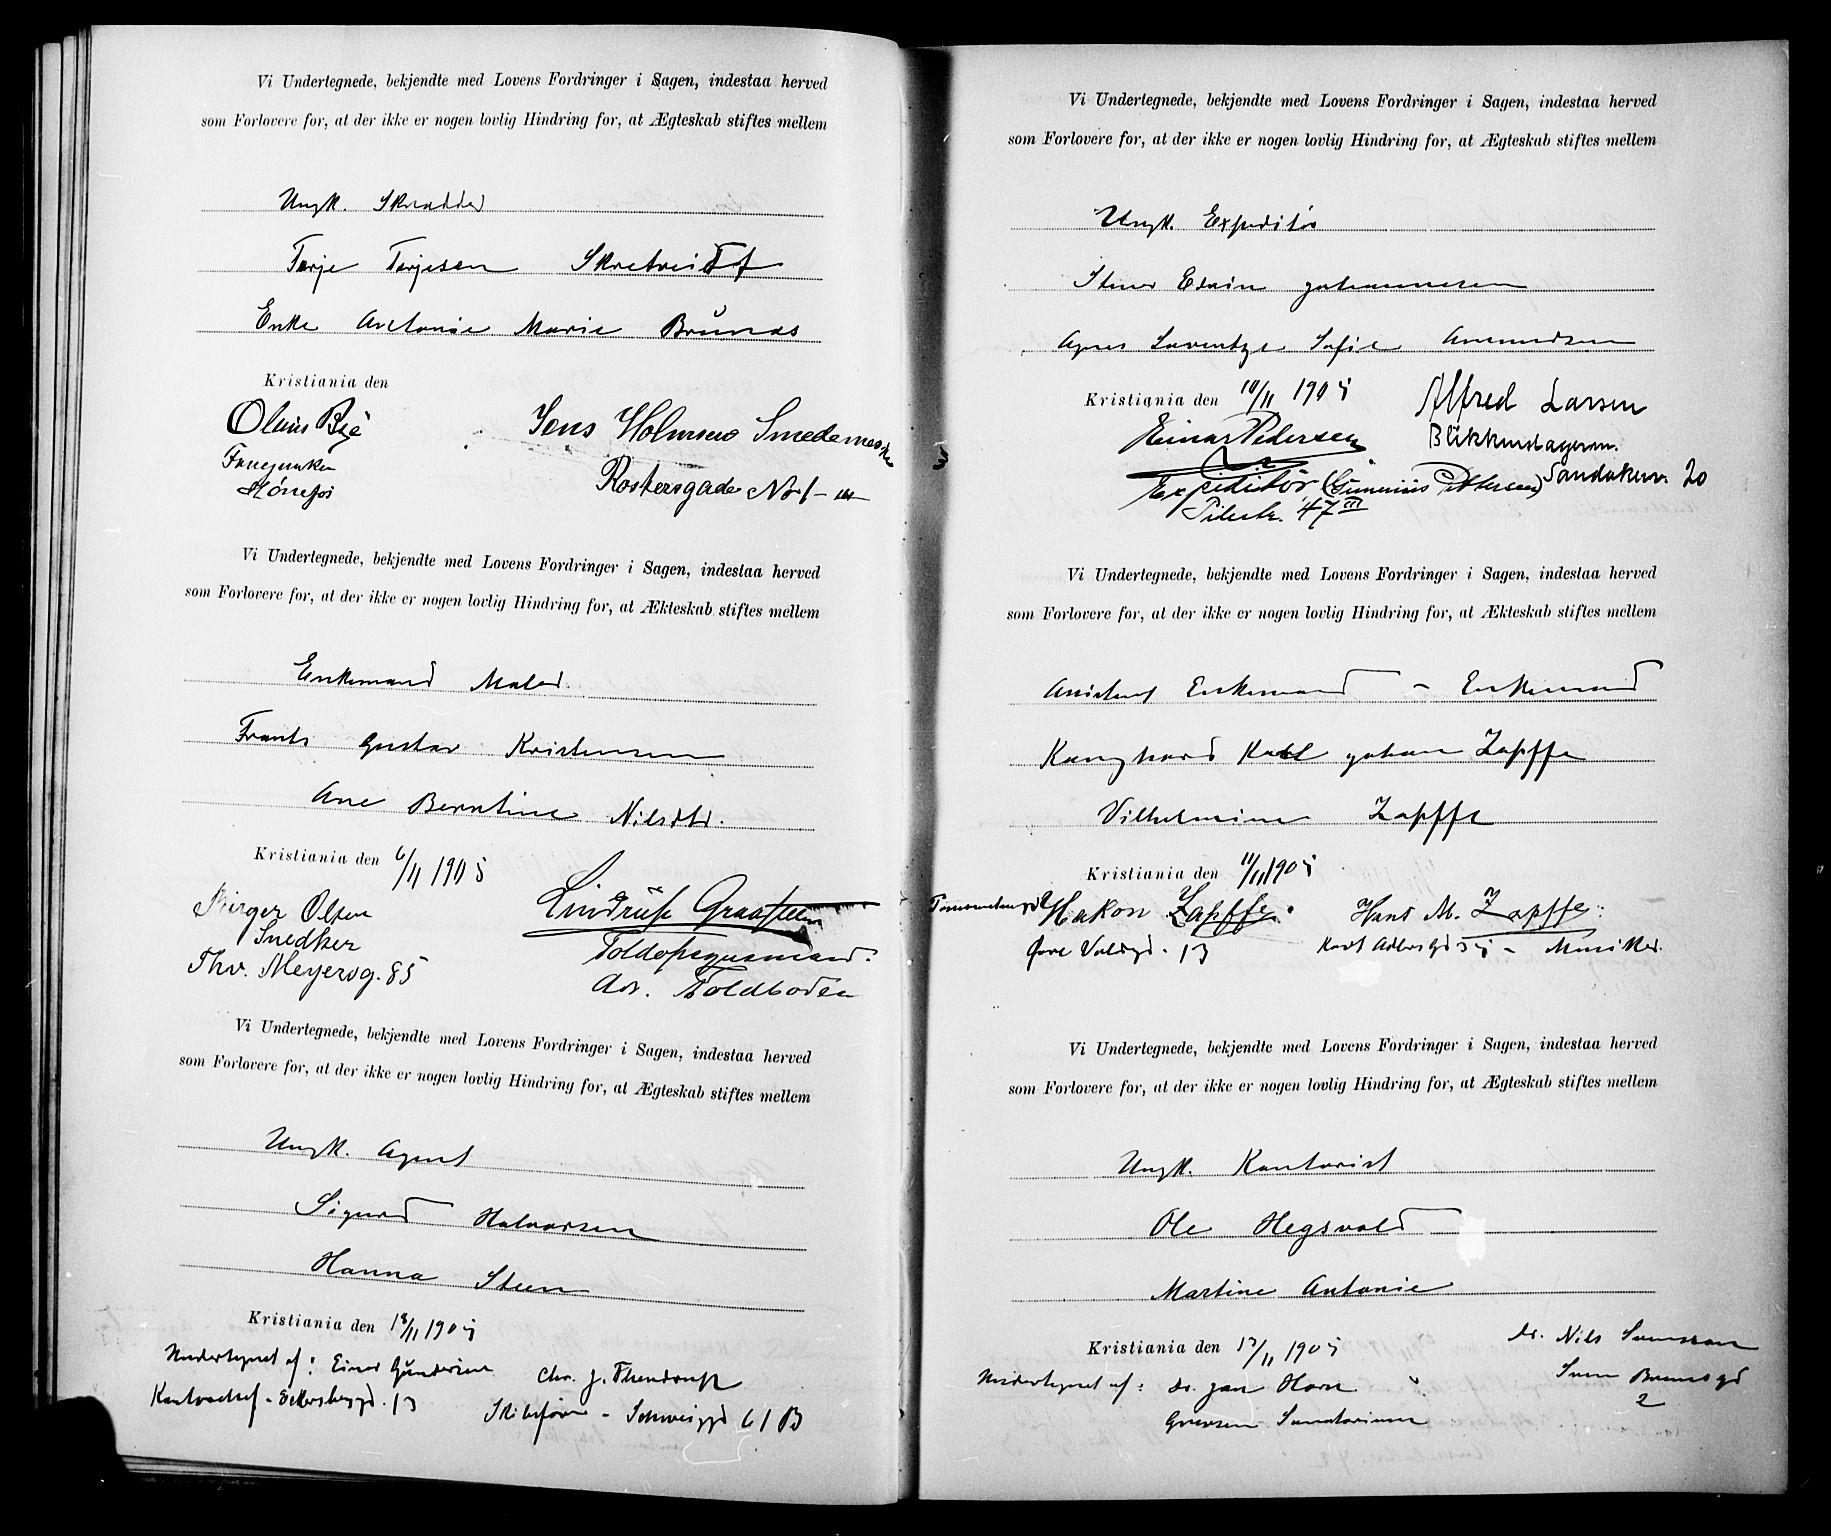 Vi Undertegnede, bekjendte med Lovens Fordringer i Sagen, indestaa herved
som Forlovere for, at der ikke er nogen lovlig Hindring for, at Ægteskab stiftes mellem
Ungk. Skrædder
Terje Terjesen
Enke Antonie Marie
Kristiania den
Olaus Bye
Jens Holmsen Smedemester
Hønefos
Rostersgade No 1
Vi Undertegnede, bekjendte med Lovens Fordringer i Sagen, indestaa herved
som Forlovere for, at der ikke er nogen lovlig Hindring for, at Ækteskab stiftes mellem
Enkemand Maler
Frants Gustav Kristensen
Ane Berntine Nilsdtr.
Kristiania den 6/11 1905
Birger Olsen
Snedker
Thv. Meyersg. 85
Toldopsynsmand
Adr. Toldboden
Vi Undertegnede, bekjendte med Lovens Fordringer i Sagen, indestaa herved
som Forlovere for, at der ikke er nogen lovlig Hindring for, at Ægteskab stiftes mellem
Ungk. Agent
Sigurd Halvorsen
Hanna Steen
Kristiania den 18/11 1905
Undertegnet af: Einar Gundersen
Chr. J.
Kontorchef 13
Skibsfører - Schweigsgd 61 B
Vi Undertegnede, bekjendte med Lovens Fordringer i Sagen, indestaa herved
som Forlovere for, at der ikke er nogen lovlig Hindring for, at Ægteskab stiftes mellem
Ungk. Expeditør
Edvin Johannesen
Agnes Laventze Sofie Amundsen
Kristiania den 10/11 1905
Alfred Larsen
Einar Pedersen
Expeditør (Gunerius Pettersen)
Sandakerv. 20
Pilestr. 47 III
Vi Undertegnede, bekjendte med Lovens Fordringer i Sagen, indestaa herved
som Forlovere for, at der ikke er nogen lovlig Hindring for, at Ækteskab stiftes mellem
Enkemand - Enkemand
Karl Johan Zapffe
Vilhelmine Zapffe
Kristiania den 11/11 1905
Hakon Zapffe
Hans M. Zapffe
Øvre Voldgd. 13
Musiker
Vi Undertegnede, bekjendte med Lovens Fordringer i Sagen, indestaa herved
som Forlovere for, at der ikke er nogen lovlig Hindring for, at Ægteskab stiftes mellem
Ungk. Kontorist
Ole Hegsvold
Martine Antonie
Kristiania den 17/11 1905
Dr. Nils
Undertegnet af: Dr. Jan Horn
Sven Brunsgd
2
Grefsen Sanatorium